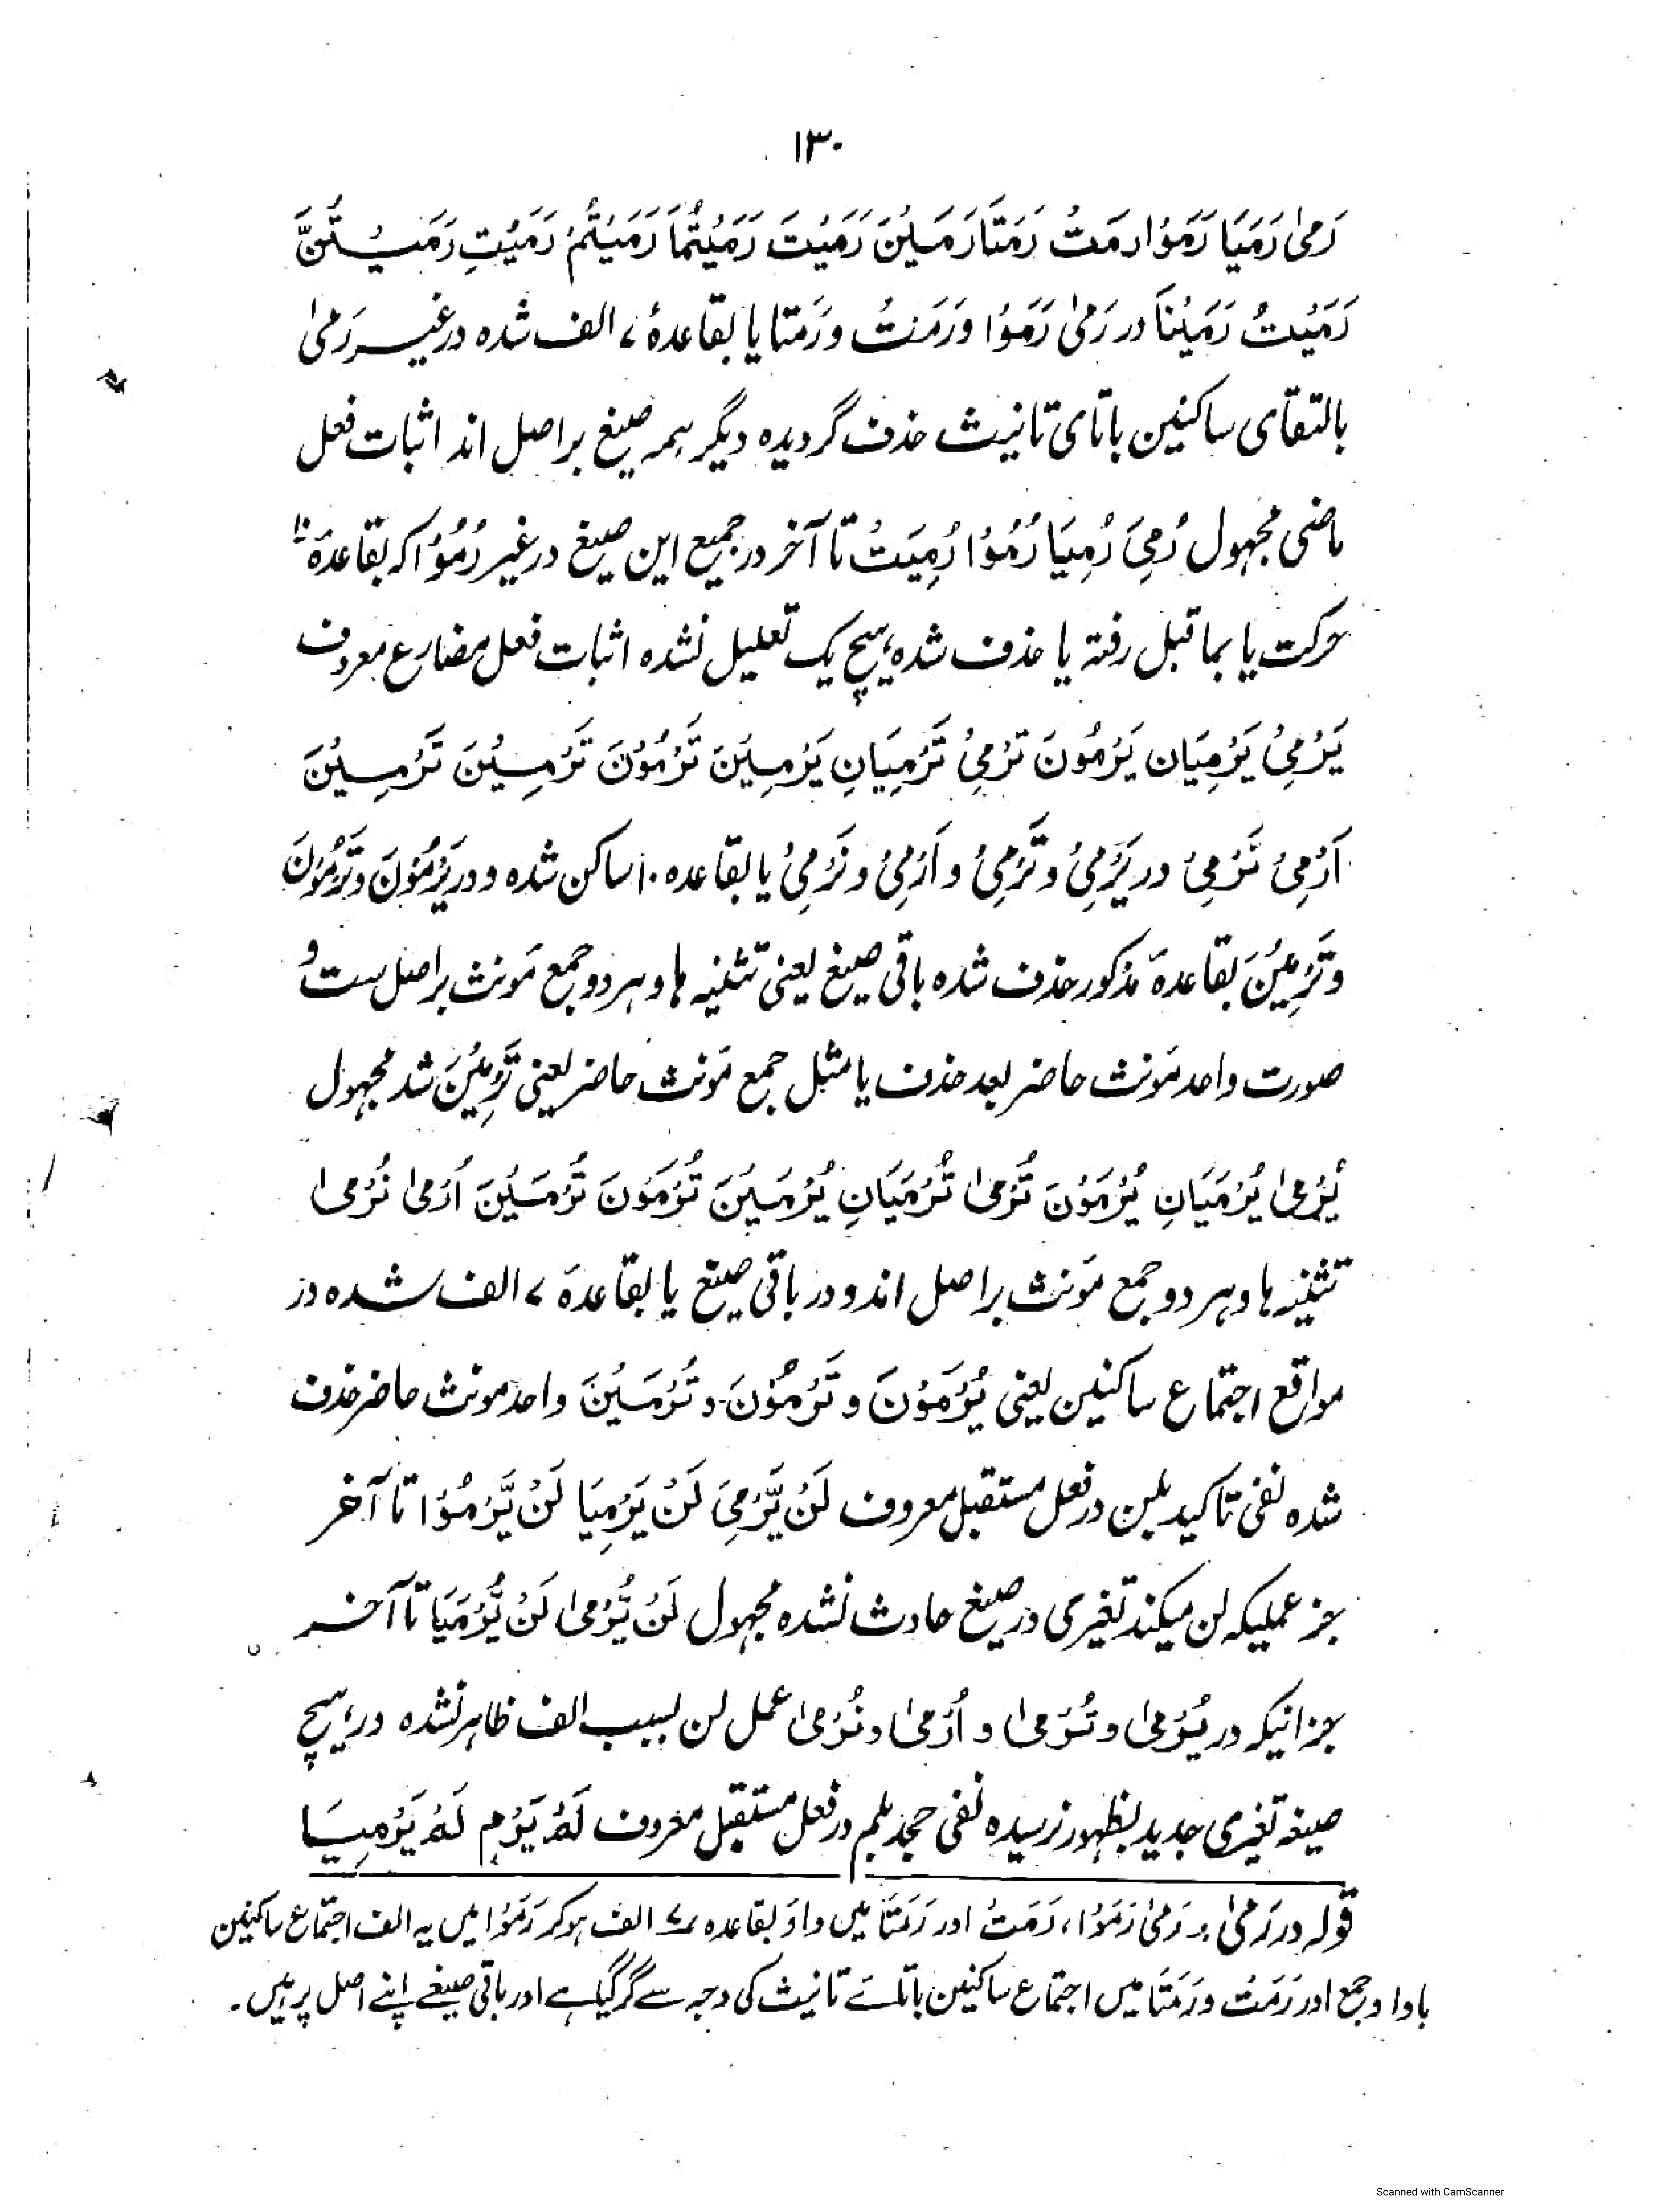 ۱۳۰
رَمیٰ رَمَیَا رَمَوْا رمَتْ رَمَتَا رَمَیْنَ رَمَیْتَ رَمَیْتُمَا رَمَیْتُمْ رَمَیْتِ رَمَیْتُنَّ
رَمَیْتُ رَمَیْنَا در رَمیٰ رَمَوْا ورَمَتْ ورَمَتا یا بقاعدۂ ۷ الف شدہ درغیر رَمیٰ
بالتقای ساکنین باتای تانیث حذف گردیدہ دیگر ہمہ صیغ براصل اند اثبات فعل
ماضی مجہول رُمِیَ رُمِیَا رُمُوْا رُمِیَتْ تا آخر درجمیع این صیغ درغیر رُمُوْا کہ بقاعدۂ ۱۰
حرکت یا بما قبل رفتہ یا حذف شدہ، ہیچ یک تعلیل نشدہ اثبات فعل مضارع معروف
یَرْمِیْ یَرْمِیَان یَرْمُونَ تَرْمِیْ تَرْمِیَانِ یَرْمِیْنَ تَرْمُوْنَ تَرْمِیْنَ تَرْمِیْنَ
اَرْمِیْ نَرْمِیْ در یَرْمِیْ وتَرْمِیْ و اَرْمِیْ ونَرْمِیْ یا بقاعدہ ۱۰ ساکن شدہ و در یَرْمُوْنَ وتَرْمُوْنَ
وتَرْمِیْنَ بقاعدۂ مذکور حذف شدہ باقی صیغ یعنی تثنیہ ہا وہردو جمع مؤنث براصل ست و
صورت واحد مؤنث حاضر بعد حذف یا مثل جمع مؤنث حاضر یعنی تَرْمِیْنَ شد مجہول
یُرْمیٰ یُرْمَیَانِ یُرْمَوْنَ تُرْمیٰ تُرْمَیَانِ یُرْمَیْنَ تُرْمَوْنَ تُرْمَیْنَ اُرْمیٰ نُرْمیٰ
تثنیہ ہا وہر دو جمع مؤنث براصل اند ودر باقی صیغ یا بقاعدۂ ۷ الف شدہ در
مواقع اجتماع ساکنین یعنی یُرْمَوْنَ و تَرْمُوْنَ و تُرْمَیْنَ واحد مونث حاضر حذف
شدہ نفی تاکید بلن درفعل مستقبل معروف لَنْ یَّرْمِیَ لَنْ یَرْمِیَا لَنْ یَّرْمُوْا تا آخر
جز عملیکہ لن میکند تغیری در صیغ حادث نشدہ مجہول لَنْ یُّرْمیٰ لَنْ یُّرْمَیَا تا آخر
جز اینکہ در یُرْمیٰ و تُرْمیٰ و اُرْمیٰ و نُرْمیٰ عمل لن بسبب الف ظاہر نشدہ در ہیچ
صیغہ تغیری جدید بظہور نرسیدہ نفی جحد بلم درفعل مستقبل معروف لَمْ یَرْمِ لَمْ یَرْمِیَا
قولہ در رَمیٰ :۔ رَمیٰ رَمَوْا، رَمَتْ اور رَمَتَا میں واؤ بقاعدہ ۷ الف ہوکر رَمَوْا میں یہ الف اجتماع ساکنین
باواو جمع اور رَمَتْ ورَمَتَا میں اجتماع ساکنین باتائے تانیث کی وجہ سے گر گیا ہے اور باقی صیغے اپنے اصل پر ہیں۔
Scanned with CamScanner